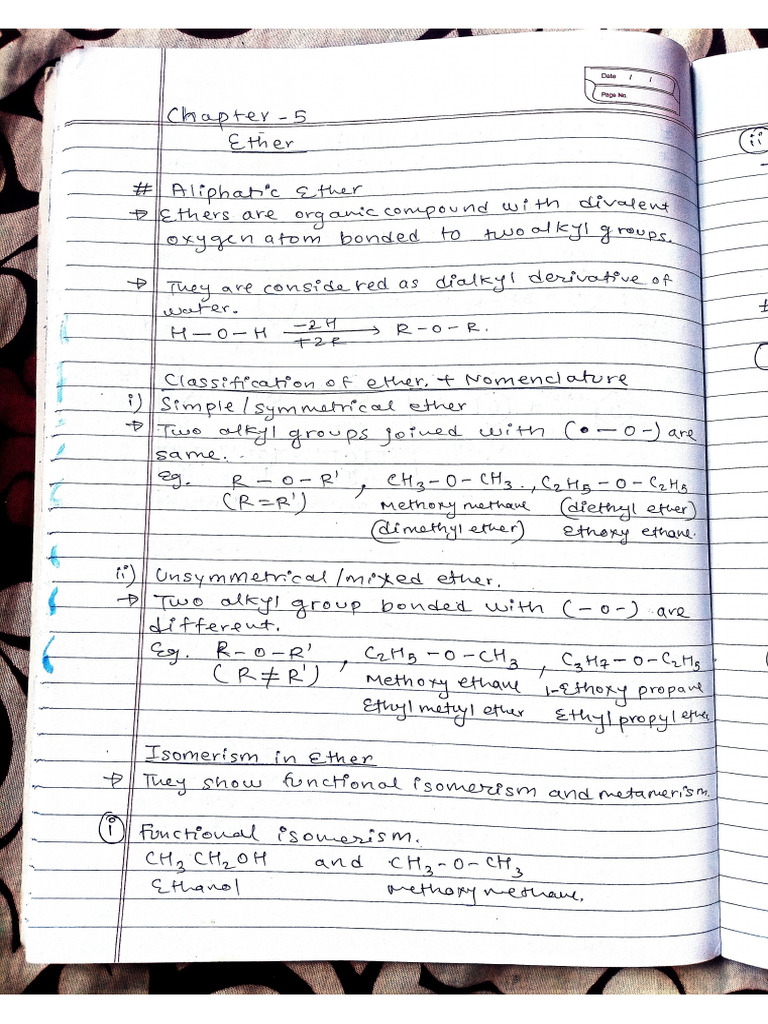 Date / /
Page No.
Chapter - 5
Ether
# Aliphatic Ether
→ Ethers are organic compound with divalent
oxygen atom bonded to two alkyl groups.
→ They are considered as dialkyl derivative of
water.
H – O – H —–2H/+2R→ R – O – R.
Classification of ether. + Nomenclature
i) Simple / symmetrical ether
→ Two alkyl groups joined with (• – O -) are
same.
Eg. R – O – R' , CH3 – O – CH3 . , C2H5 – O – C2H5
(R = R') Methoxy methane (diethyl ether)
(dimethyl ether) Ethoxy ethane.
ii) Unsymmetrical / mixed ether.
→ Two alkyl group bonded with (– O –) are
different.
Eg. R – O – R' , C2H5 – O – CH3 , C3H7 – O – C2H5
(R ≠ R') Methoxy ethane 1-Ethoxy propane
Ethyl metyl ether Ethyl propyl ether
Isomerism in Ether
→ They show functional isomerism and metamerism.
i Functional isomerism.
CH3 CH2OH and CH3 – O – CH3
Ethanol methoxy methane.
ii